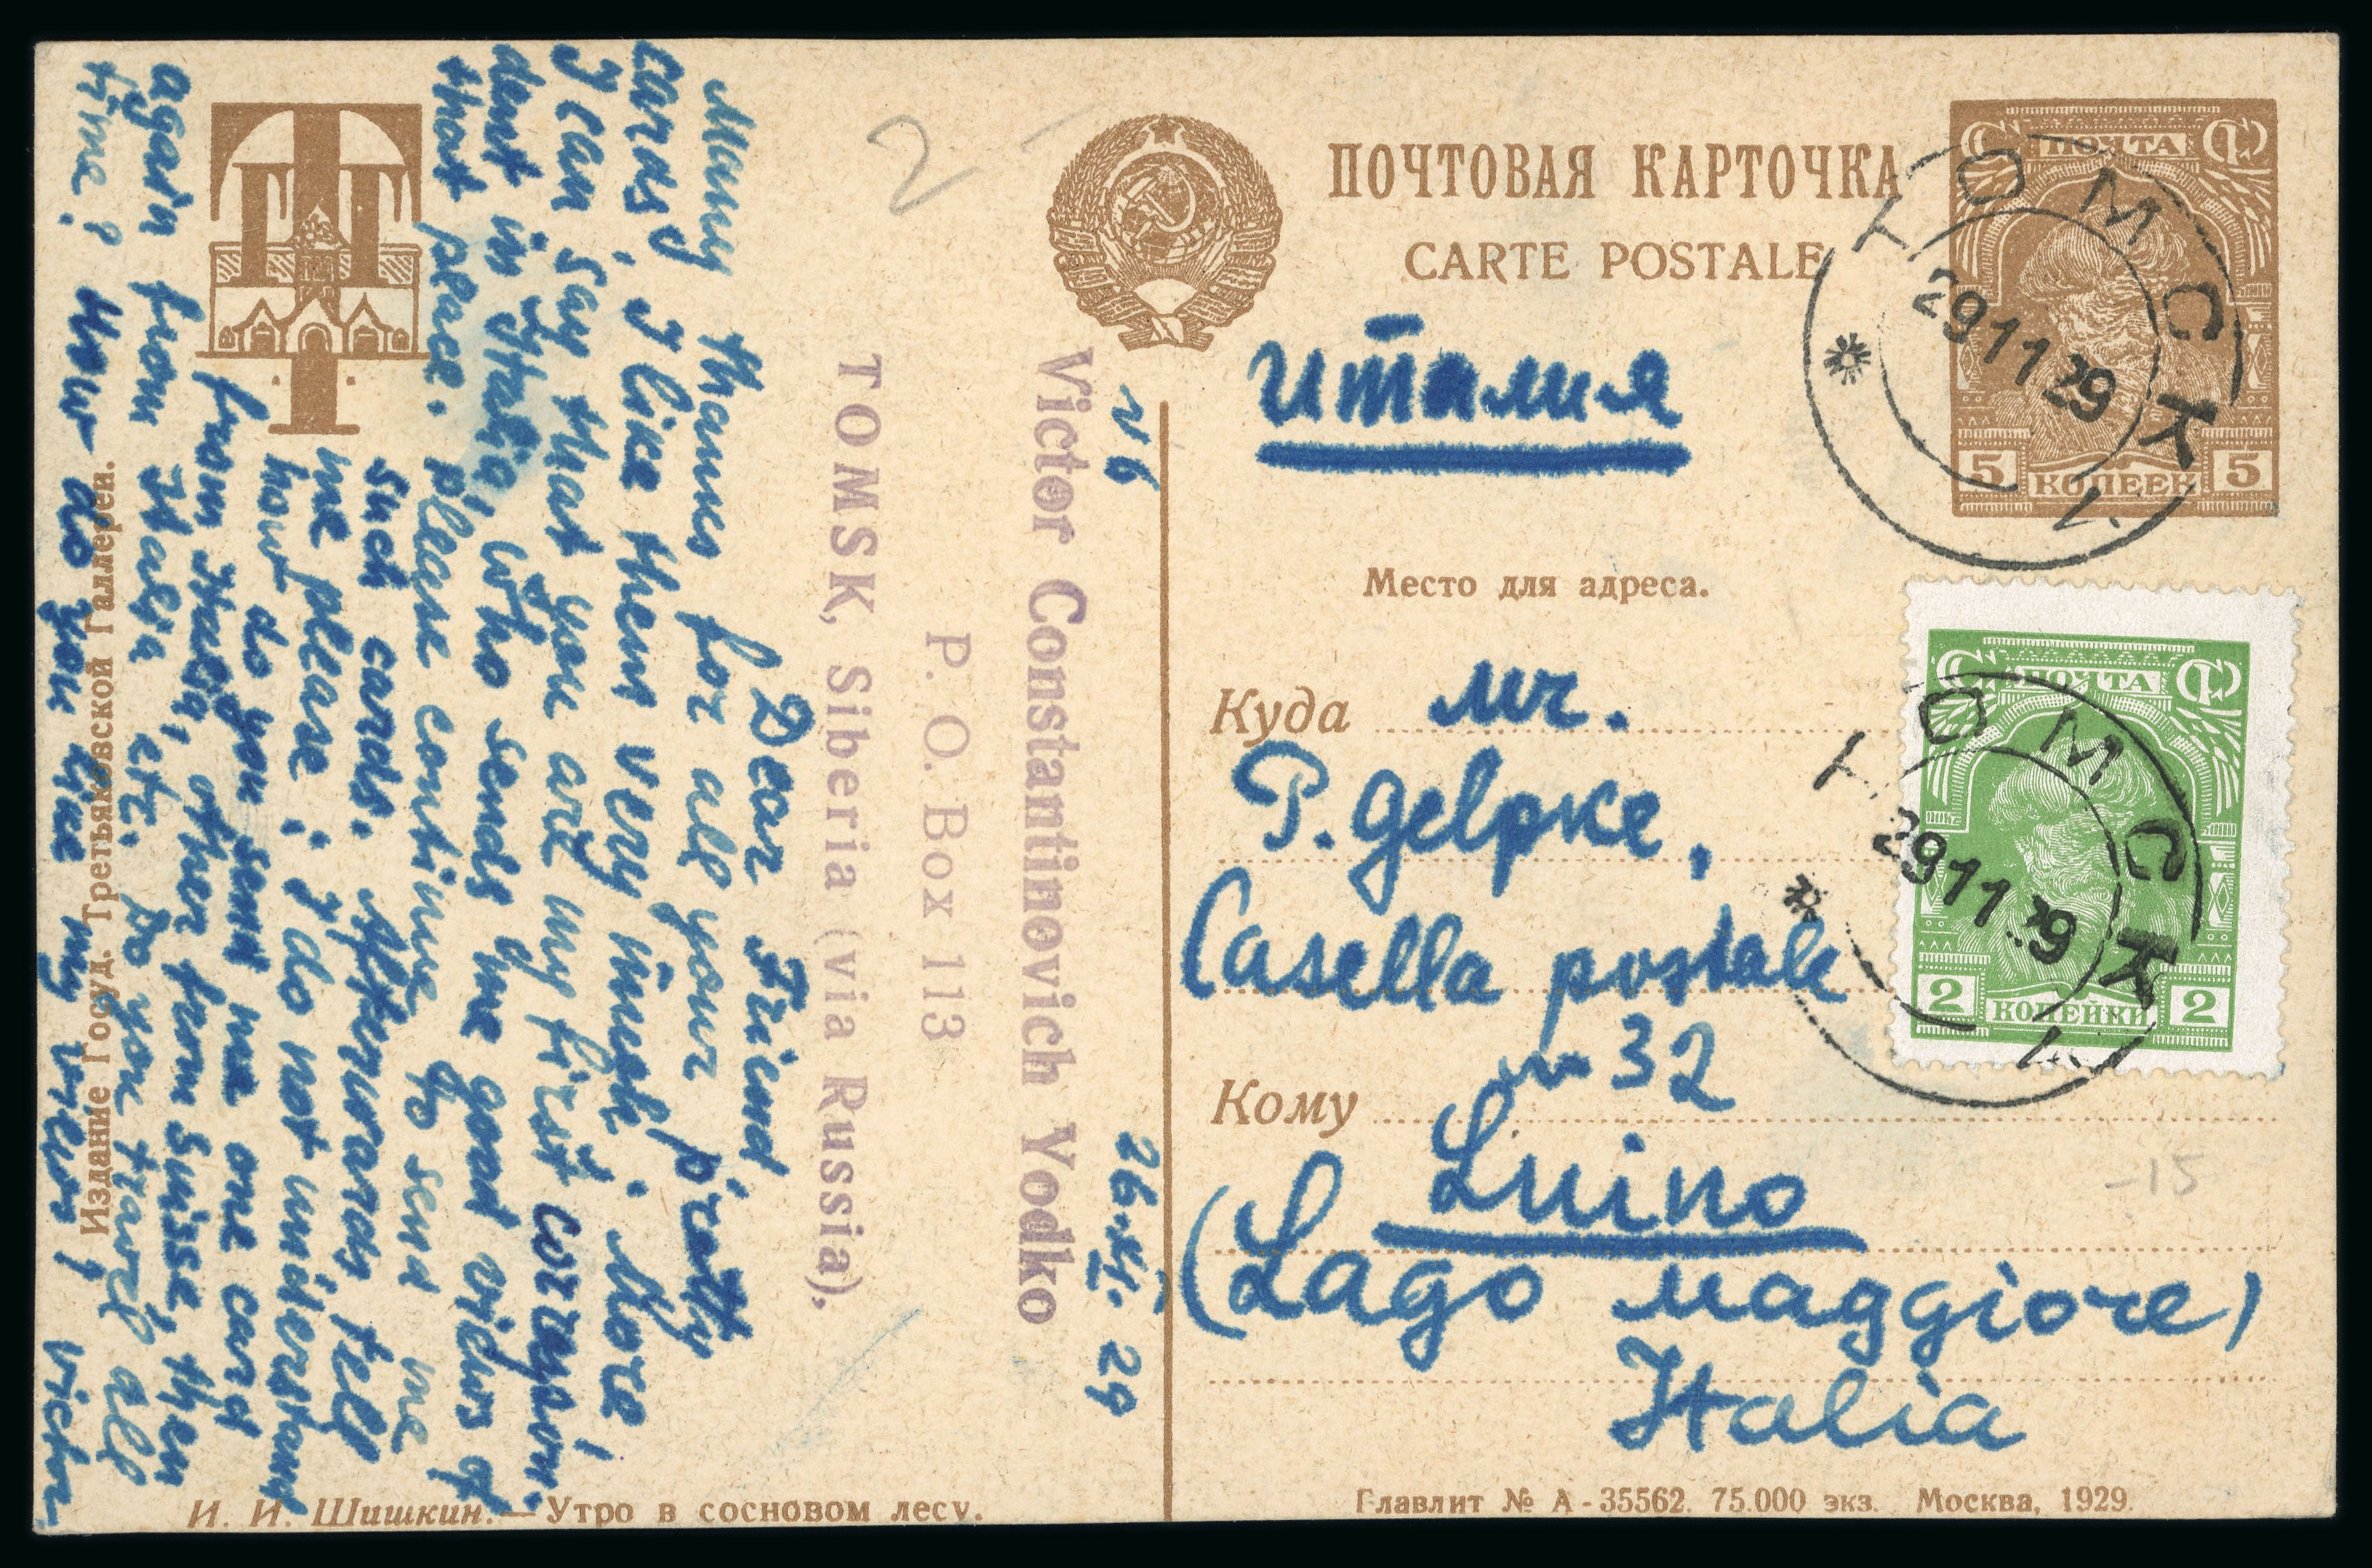 ПОЧТОВАЯ КАРТОЧКА
CARTE POSTALE
Италия
Место для адреса.
Куда
Mr.
P. Gelpke,
Casella postale
№ 32
Кому
Luino
(Lago Maggiore)
Italia
Главлит № А-35562. 75.000 экз. Москва, 1929.
ПОЧТА
5 КОПЕЕК 5
ТОМСК
29 11 29
1
ПОЧТА
2 КОПЕЙКИ 2
ТОМСК
29 11 29
1
2 -
-15
N 6
26.XI. 29
Victor Constantinovich Yodko
P. O. Box 113
TOMSK, Siberia (via Russia),
Dear Friend
Many thanks for all your pretty
cards, I like them very much. More,
I can say that you are my first correspon-
dent in Italia, who sends me good views of
that place. Please continue to send me
such cards. Afterwards, tell
me please: I do not understand
how do you send me one card
from Italia, other from Suisse, then
again from Italia etc. Do you travel all
time? How do you like my views? Victor
Издание Госуд. Третьяковской Галлереи.
И. И. Шишкин.—Утро в сосновом лесу.